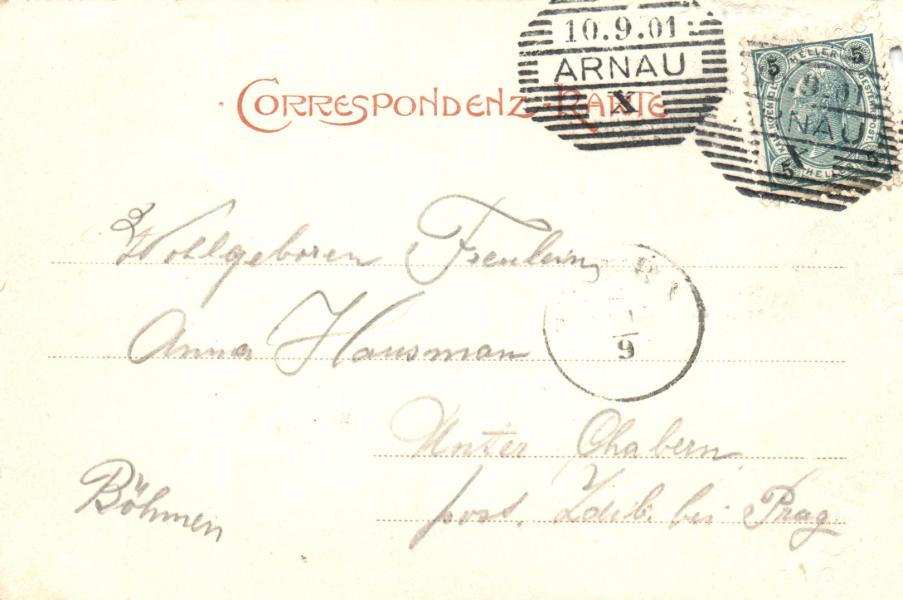 10.9.01
ARNAU
X
CORRESPONDENZ-KARTE
5 HELLER 5
9.01
NAU
X
5 HELLER 5
Wohlgeboren Freulein
Anna Hausman
9
Unter Chabern
post. Zdib. bei Prag
Böhmen